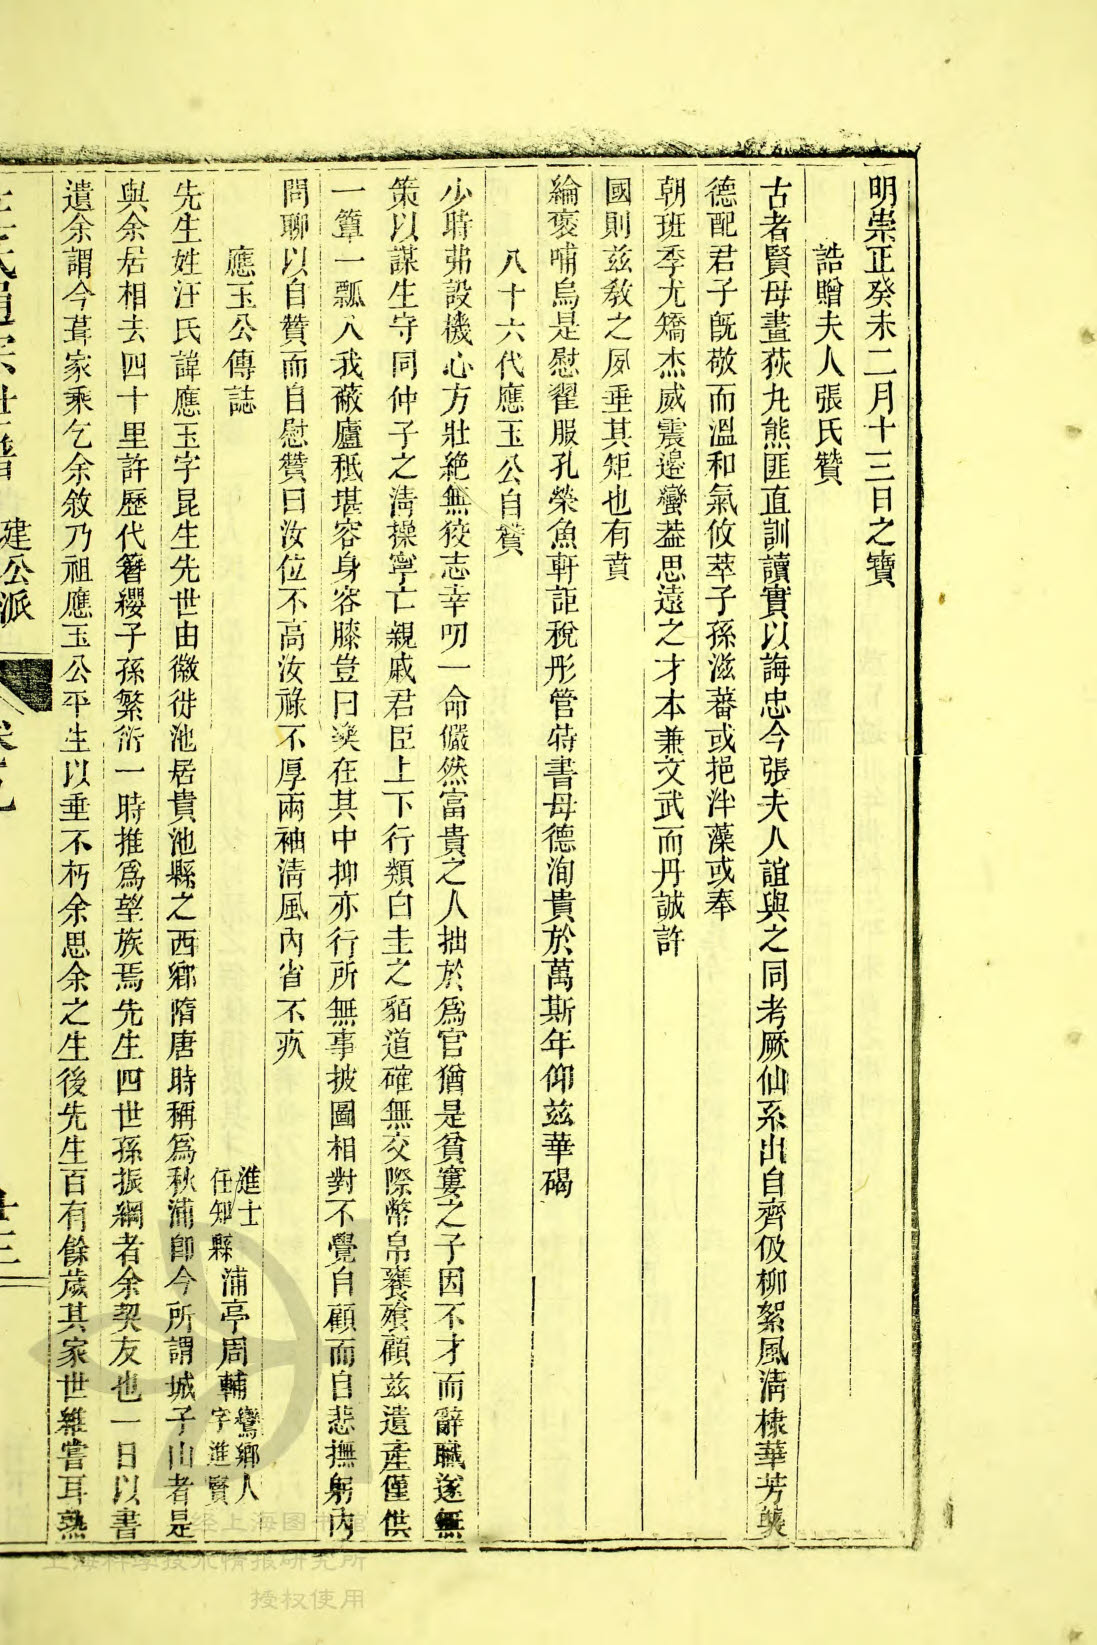 明崇正癸未二月十三日之寶
誥贈夫人張氏贊
古者賢母畫荻丸熊匪直訓讀實以誨忠今張夫人誼與之同考厥仙系出自齊伋柳絮風淸棣華芳襲
德配君子旣敬而溫和氣攸萃子孫滋蕃或挹泮藻或奉
朝班季尤矯杰威震邊蠻葢思遠之才本兼文武而丹誠許
國則兹敎之夙垂其矩也有賁
綸褒哺烏是慰翟服孔榮魚軒詎稅彤管特書母德洵貴於萬斯年仰兹華碣
八十六代應玉公自贊
少時弗設機心方壯絶無狡志幸叨一命儼然富貴之人拙於爲官猶是貧寠之子因不才而辭職遂無
策以謀生守同仲子之淸操寧亡親戚君臣上下行類白圭之貊道確無交際幣帛饔飧顧兹遺產僅供
一簞一瓢入我蔽廬秪堪容身容膝豈曰樂在其中抑亦行所無事披圖相對不覺自顧而自悲撫躬內
問聊以自贊而自慰贊曰汝位不高汝祿不厚兩袖淸風內省不疚
應玉公傳誌
進士任知縣浦亭周輔鸞鄉人字進賢
先生姓汪氏諱應玉字昆生先世由徽徙池居貴池縣之西鄉隋唐時稱爲秋浦卽今所謂城子山者是
與余居相去四十里許歷代簪纓子孫繁衍一時推爲望族焉先生四世孫振綱者余契友也一日以書
遺余謂今葺家乘乞余敘乃祖應玉公平生以垂不朽余思余之生後先生百有餘歲其家世雖嘗耳熟
氏通宗世譜
建公派
经上海图书馆
上海科学技术情报研究所
授权使用